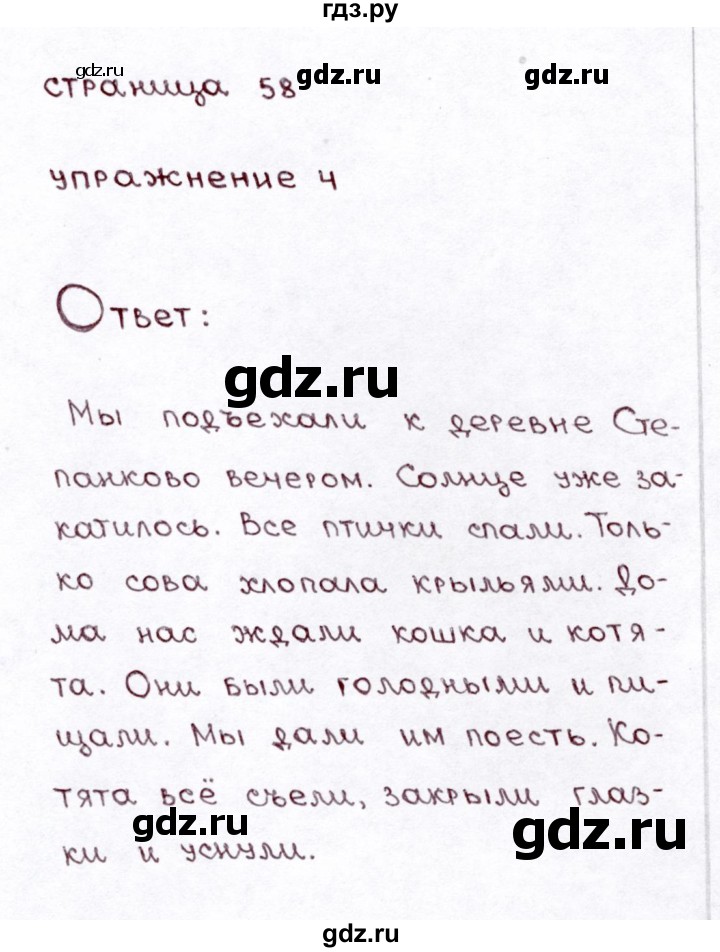 гдз.ру
gdz.ru
gdz.ru
gdz.ru
страница 58
упражнение 4
Ответ:
gdz.ru
Мы подъехали к деревне Сте-
панково вечером. Солнце уже за-
катилось. Все птички спали. Толь-
ко сова хлопала крыльями. До-
ма нас ждали кошка и котя-
та. Они были голодными и пи-
щали. Мы дали им поесть. Ко-
тята всё съели, закрыли глаз-
gdz.ru
gdz.ru
ки и уснули.
gdz.ru